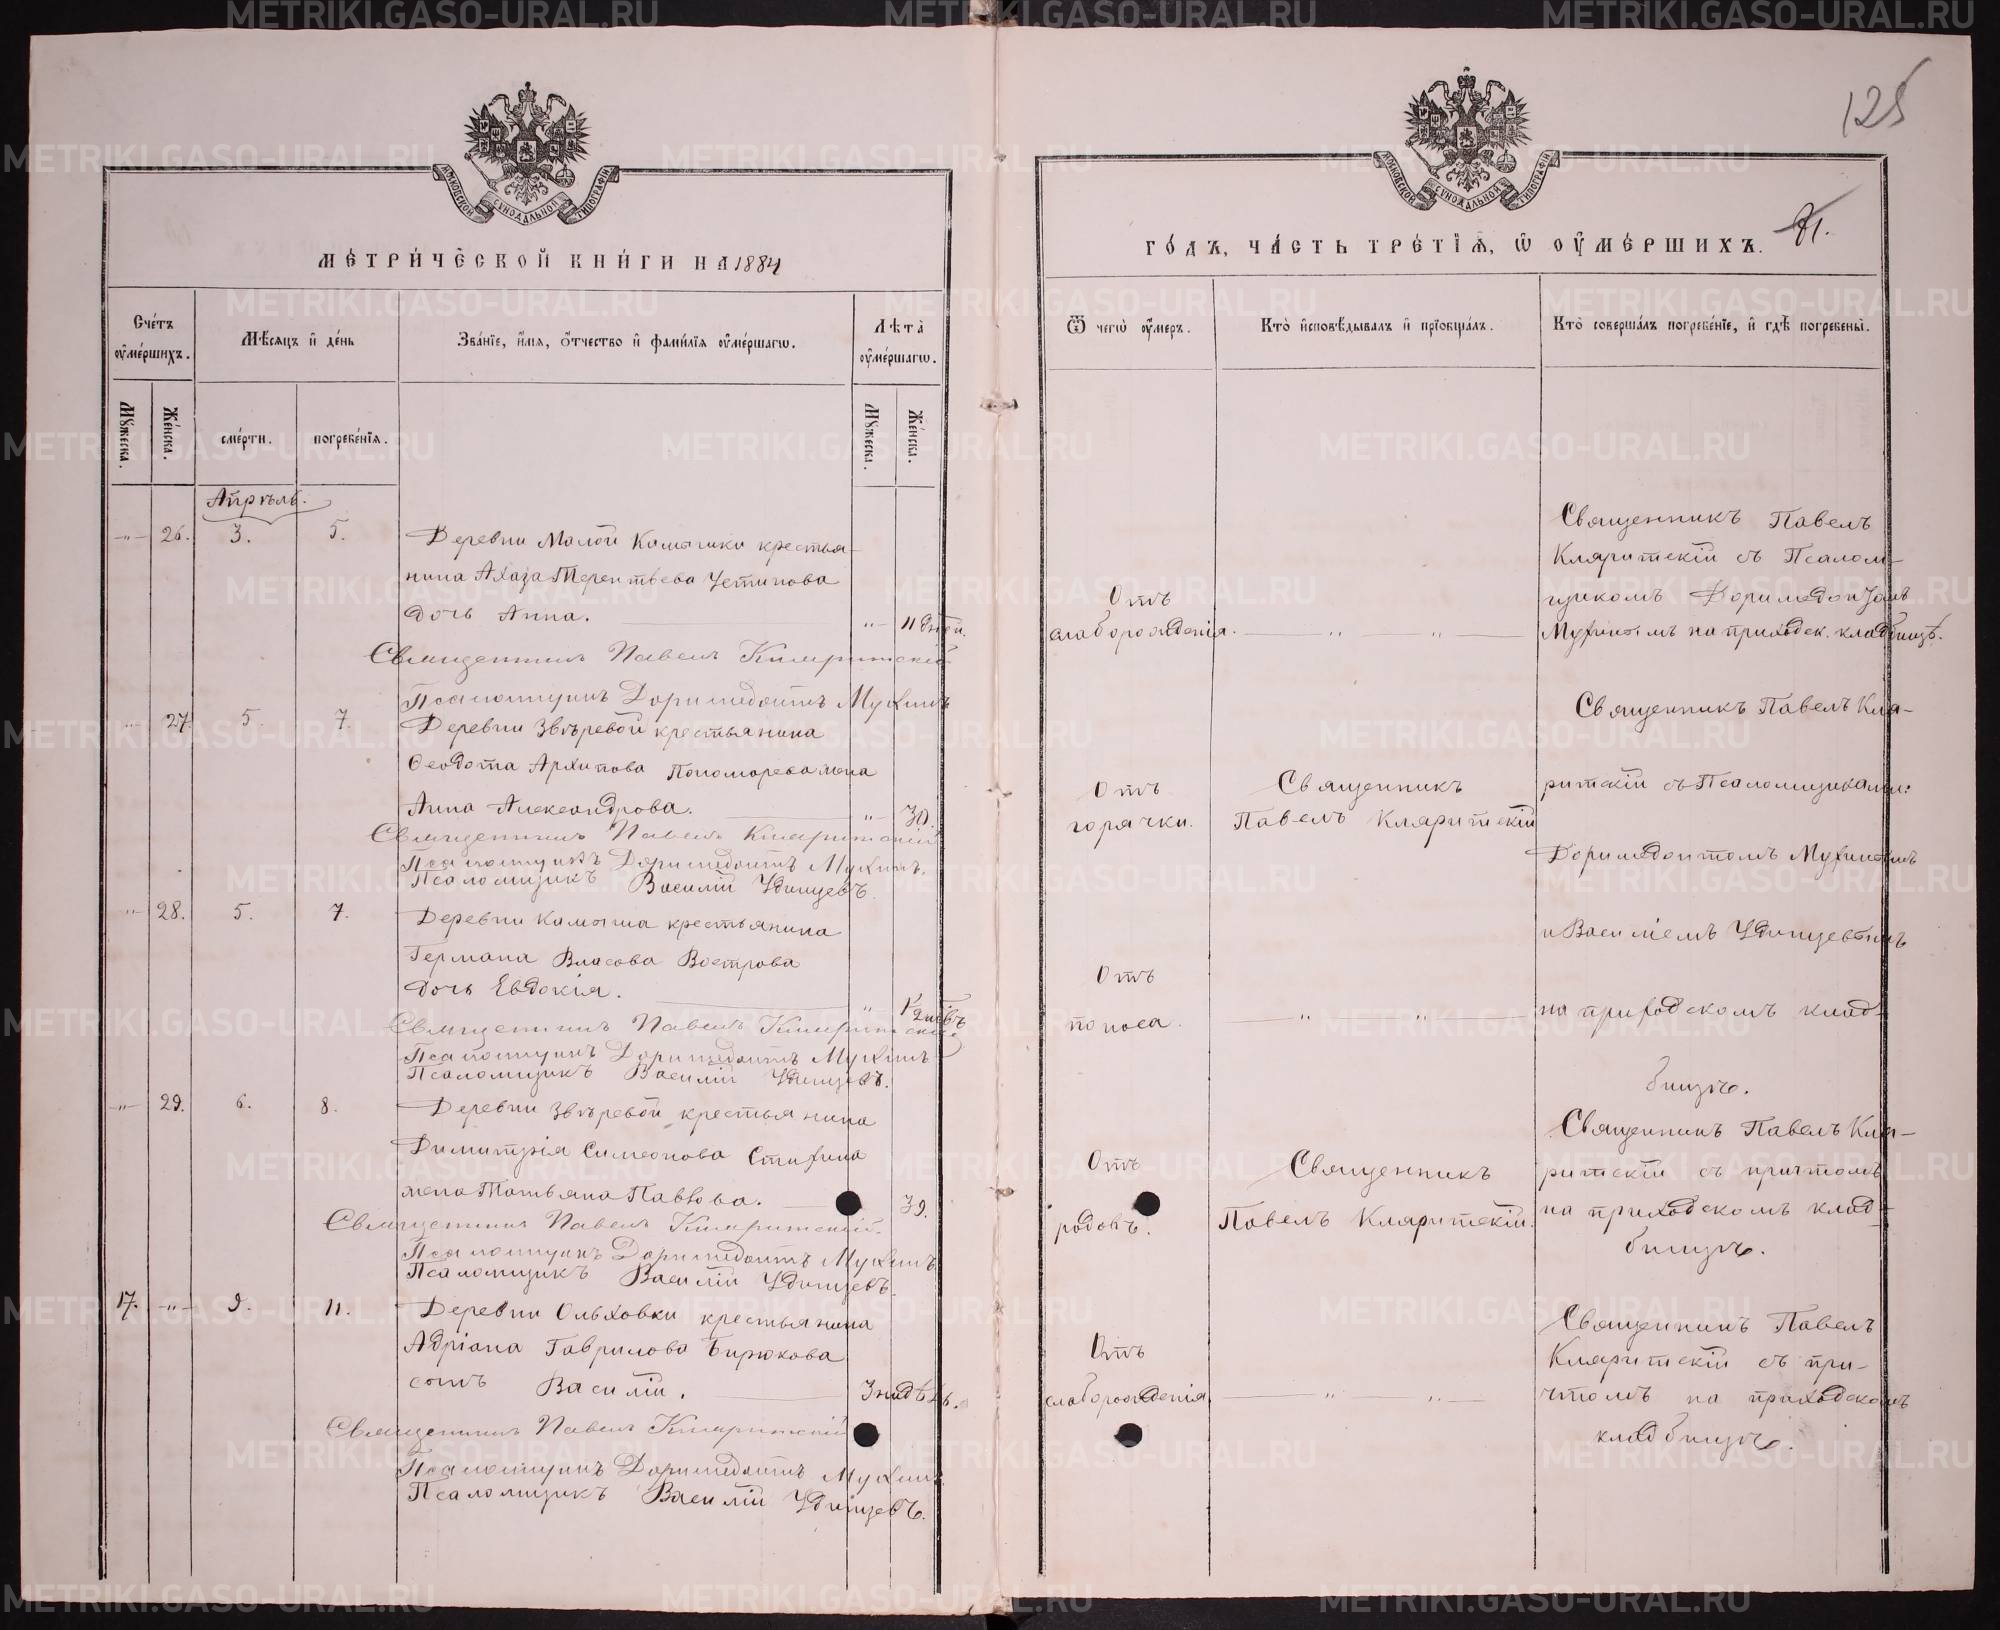 METRIKI.GASO-URAL.RU
125
МОСКОВСКОЙ СУНОДАЛЬНОЙ ТИПОГРАФІИ
МЕТРИЧЕСКОЙ КНИГИ НА 1884
Счетъ оумершихъ.
Мѣсяцъ и день
Званіе, имя, отчество и фамилія оумершагѡ.
Лѣта оумершагѡ.
Мужеска.
Женска.
смерти.
погребенія.
Мужеска.
Женска.
Апрѣль.
-"- 26. 3. 5. Деревни Малой Камышки крестья-
нина Ахаза Терентьева Устинова
дочь Анна. "- 11 дней.
Священникъ Павелъ Кляритскій
Псаломщикъ Доримедонтъ Мухинъ
"- 27 5. 7. Деревни Звѣревой крестьянина
Ѳеодота Архипова Пономарева жена
Анна Александрова. "- 30.
Священникъ Павелъ Кляритскій
Псаломщикъ Доримедонтъ Мухинъ.
Псаломщикъ Василій Удинцевъ.
"- 28. 5. 7. Деревни Камыша крестьянина
Германа Власова Вострова
дочь Евдокія. "
Священникъ Павелъ Кляритскій
Псаломщикъ Доримедонтъ Мухинъ
Псаломщикъ Василій Удинцевъ.
-"- 29. 6. 8. Деревни Звѣревой крестьянина
Димитрія Симеонова Стихина
жена Татьяна Павлова. 39.
Священникъ Павелъ Кляритскій.
Псаломщикъ Доримедонтъ Мухинъ
Псаломщикъ Василій Удинцевъ.
17. -"- 9. 11. Деревни Ольховки крестьянина
Адріана Гаврилова Бирюкова
сынъ Василій. 3 недѣль.
Священникъ Павелъ Кляритскій
Псаломщикъ Доримедонтъ Мухинъ
Псаломщикъ Василій Удинцевъ.
МОСКОВСКОЙ СУНОДАЛЬНОЙ ТИПОГРАФІИ
ГОДЪ, ЧАСТЬ ТРЕТІЯ, Ѡ ОУМЕРШИХЪ. 81.
Ѿ чегѡ оумеръ.
Кто исповѣдывалъ и пріобщалъ.
Кто совершалъ погребеніе, и гдѣ погребены.
Отъ
слаборожденія. " "
Священникъ Павелъ
Кляритскій съ Псалом-
щикомъ Доримедонтомъ
Мухинымъ на приходск. кладбищѣ.
Отъ
горячки.
Священникъ
Павелъ Кляритскій
Священникъ Павелъ Кля-
ритскій съ Псаломщиками:
Доримедонтомъ Мухинымъ
и Василіемъ Удинцевымъ
Отъ
поноса. " "
на приходскомъ клад-
бищѣ.
Отъ
родовъ.
Священникъ
Павелъ Кляритскій.
Священникъ Павелъ Кля-
ритскій съ причтомъ
на приходскомъ клад-
бищѣ.
Отъ
слаборожденія. " "
Священникъ Павелъ
Кляритскій съ при-
чтомъ на приходскомъ
кладбищѣ.